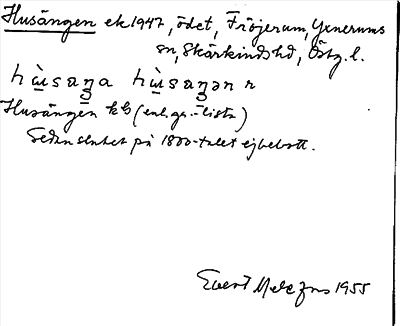 Husängen ek 1947, ödet, Fröjerum, Yxnerums
sn, Skärkinds hd, Östg. l.
hùsaŋa hùsaŋən r
Husängen kb (enl. gs.-lista)
Sedan slutet på 1800-talet ej bebott.
Evert 1955